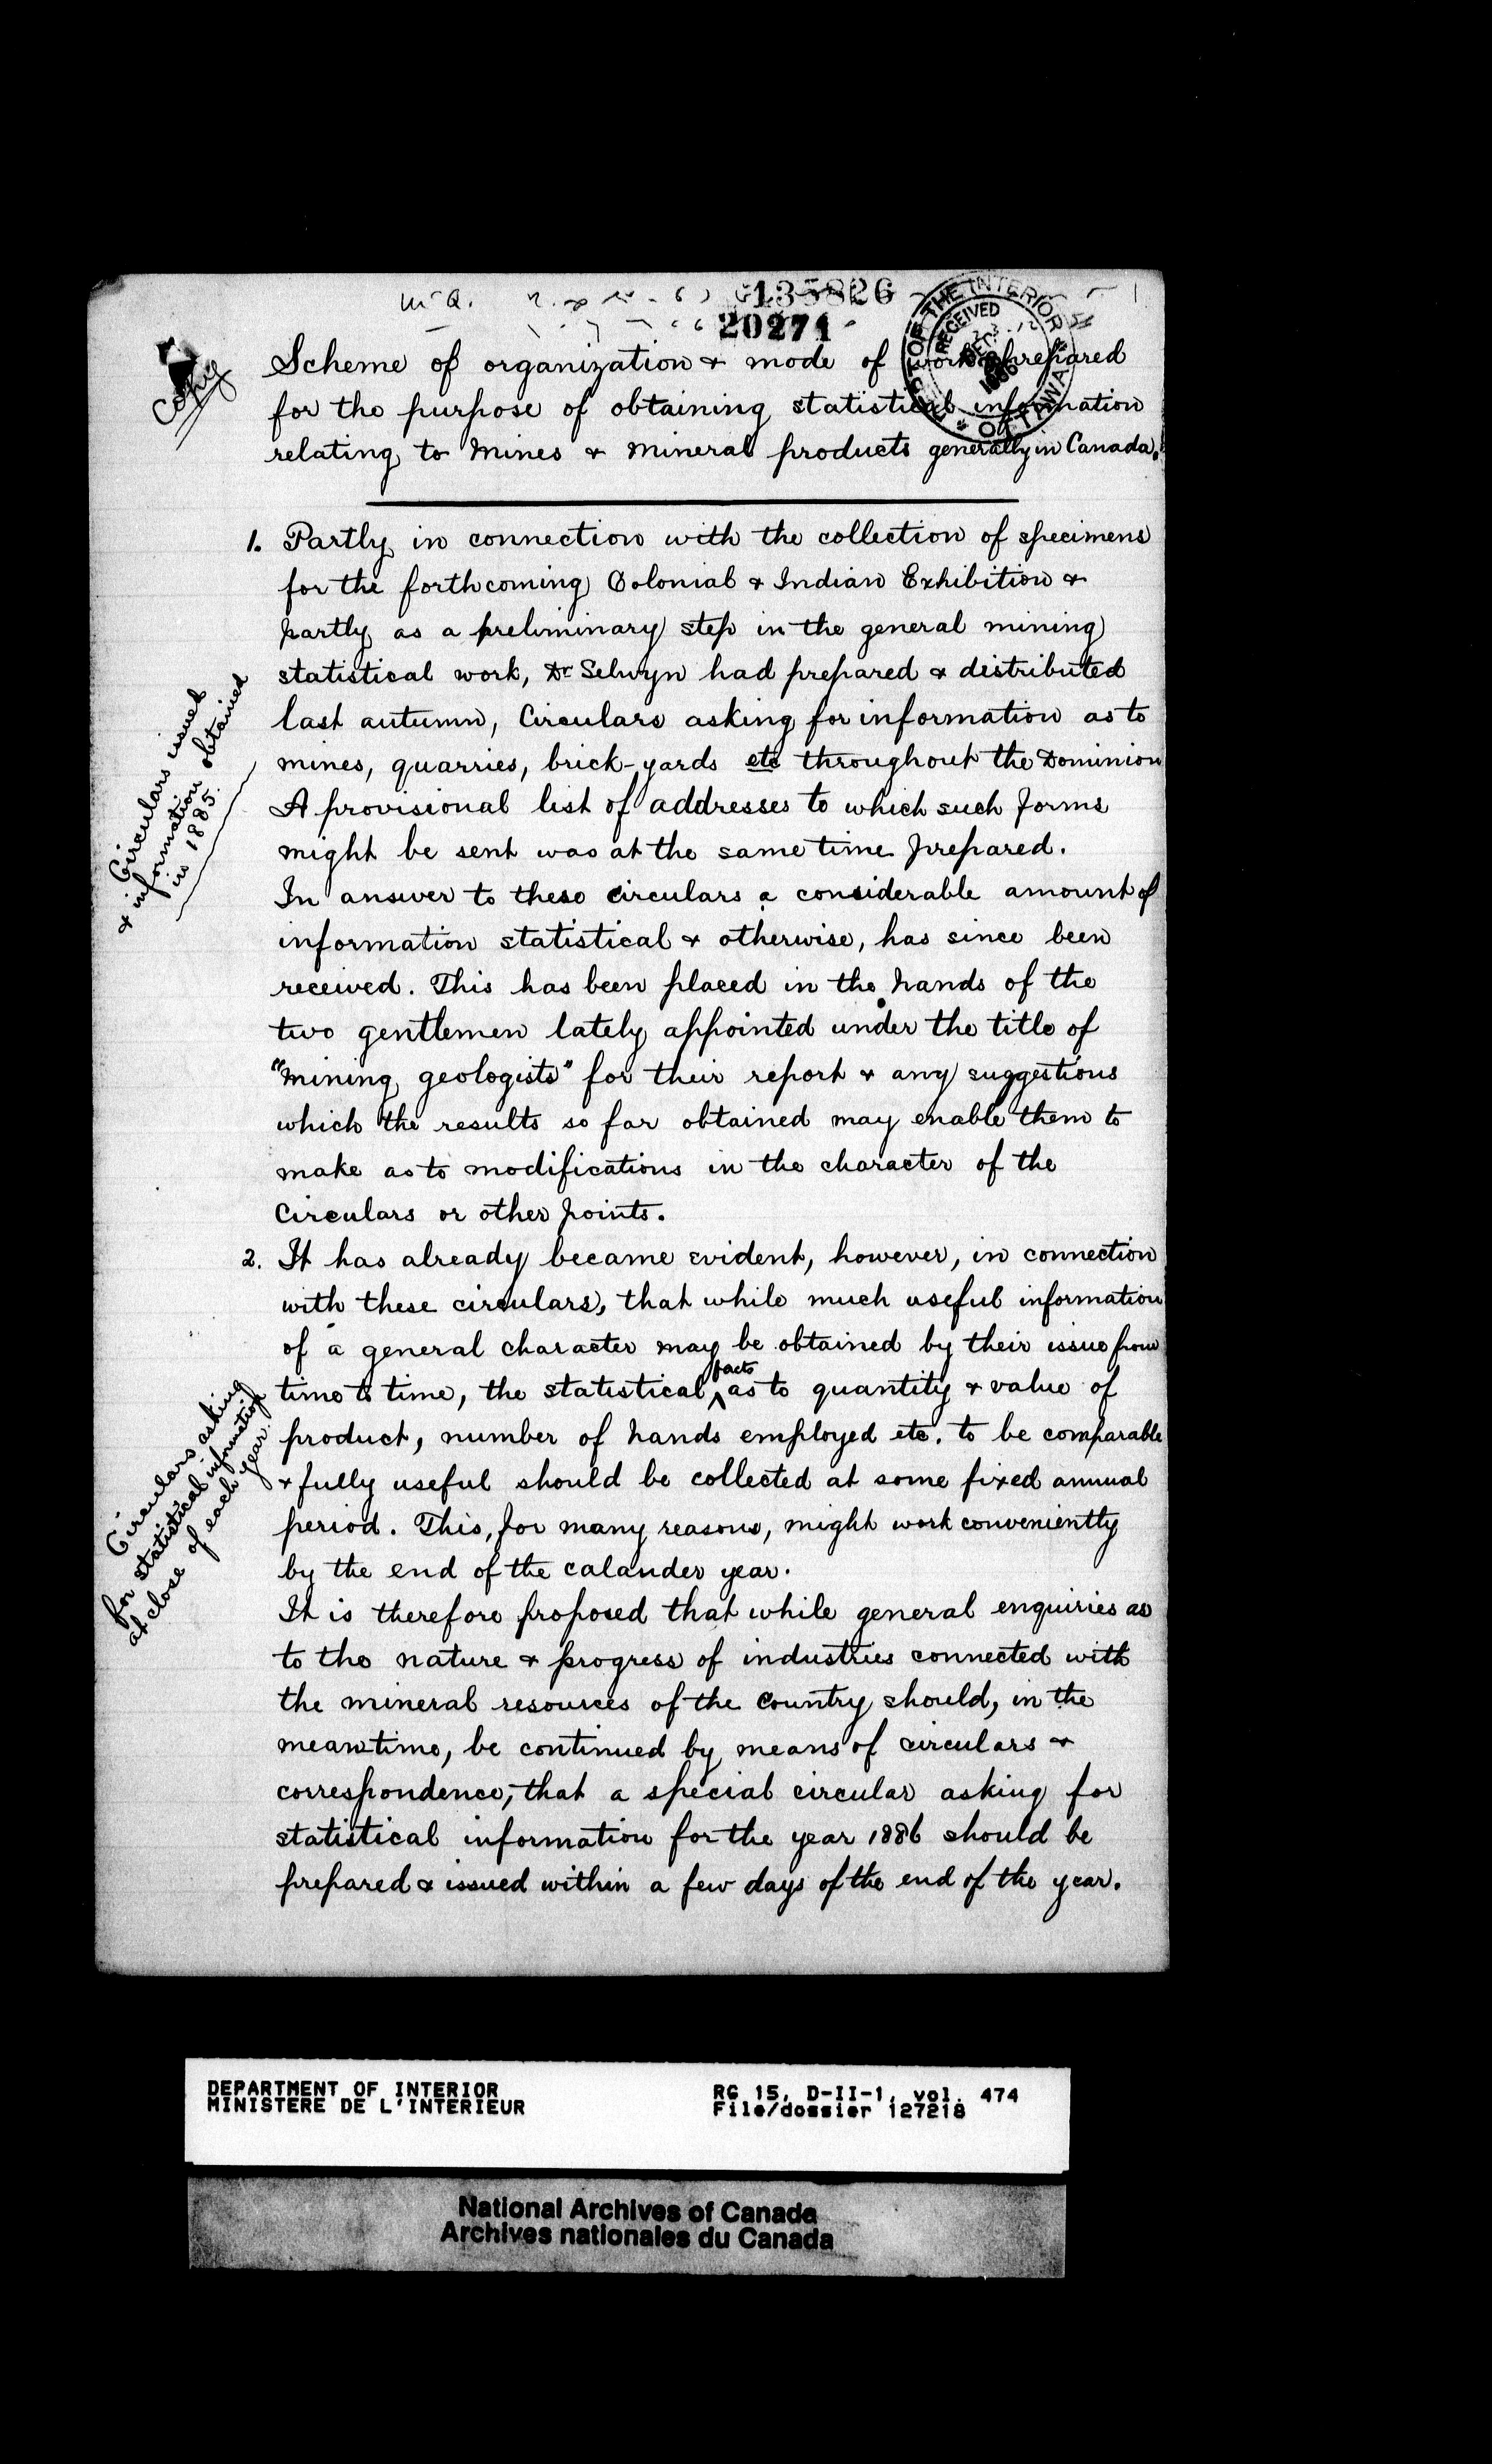 135826
20271
DEPT OF THE INTERIOR
RECEIVED
DEC
1886
OTTAWA
Copy
Scheme of organization & mode of work prepared
for the purpose of obtaining statistical information
relating to Mines & Mineral products generally in Canada.
1. Partly in connection with the collection of specimens
for the forthcoming Colonial & Indian Exhibition &
partly as a preliminary step in the general mining
statistical work, Dr Selwyn had prepared & distributed
last autumn, Circulars asking for information as to
mines, quarries, brick-yards etc throughout the Dominion
A provisional list of addresses to which such forms
might be sent was at the same time prepared.
Circulars issued
& information obtained
in 1885.
In answer to these circulars a considerable amount of
information statistical & otherwise, has since been
received. This has been placed in the hands of the
two gentlemen lately appointed under the title of
"Mining geologists" for their report & any suggestions
which the results so far obtained may enable them to
make as to modifications in the character of the
Circulars or other points.
2. It has already became evident, however, in connection
with these circulars, that while much useful information
of a general character may be obtained by their issue from
time to time, the statistical facts as to quantity & value of
product, number of hands employed etc. to be comparable
& fully useful should be collected at some fixed annual
period. This, for many reasons, might work conveniently
by the end of the calander year.
Circulars asking
for statistical information
at close of each year.
It is therefore proposed that while general enquiries as
to the nature & progress of industries connected with
the mineral resources of the Country should, in the
meantime, be continued by means of circulars &
correspondence, that a special circular asking for
statistical information for the year 1886 should be
prepared & issued within a few days of the end of the year.
DEPARTMENT OF INTERIOR
MINISTERE DE L'INTERIEUR
RG 15, D-II-1, vol. 474
File/dossier 127218
National Archives of Canada
Archives nationales du Canada